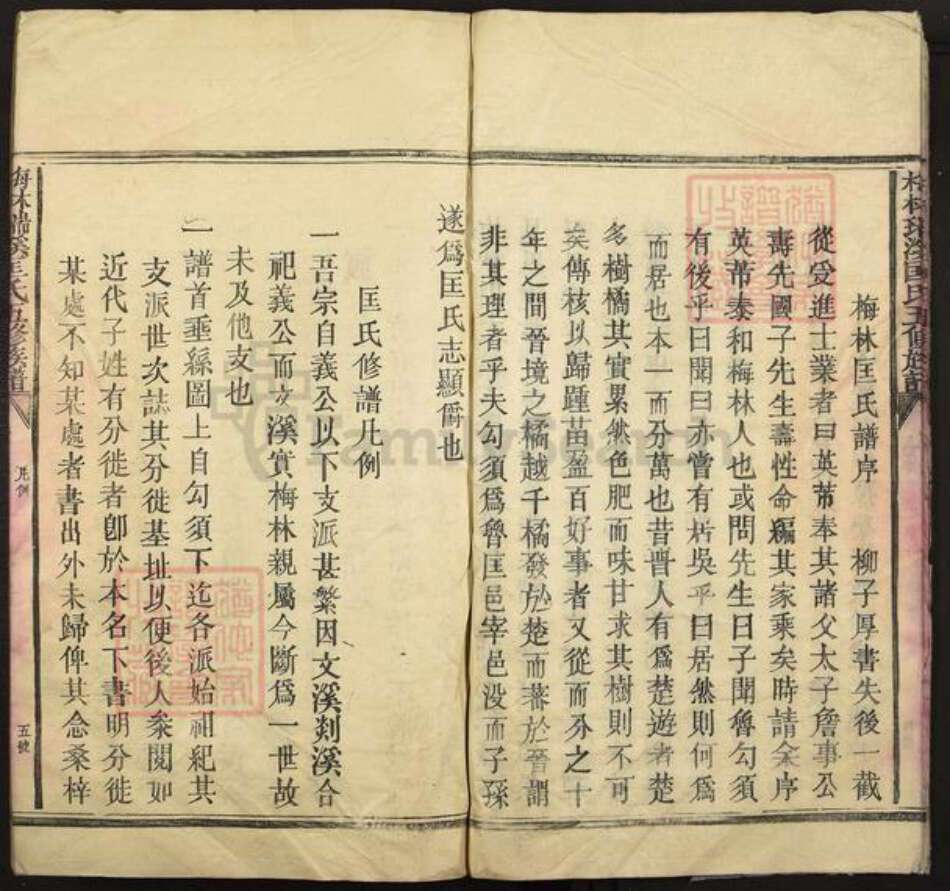 梅林匡氏譜序　柳子厚書失後一截
從受進士業者曰英芾奉其諸父太子詹事公
壽先國子先生壽性命編其家乘矣時請余序
英芾泰和梅林人也或問先生曰子聞魯勾須
有後乎曰聞曰亦嘗有居吳乎曰居然則何為
而居也本一而分萬也昔晋人有爲楚遊者楚
多樹橘其實累然色肥而味甘求其樹則不可
矣傳核以歸踵苗盈百好事者又從而分之十
年之間晉境之橘越千橘發於楚而蕃於晉謂
非其理者乎夫勾須爲魯匡邑宰邑没而子孫
遂爲匡氏志顯爵也
匡氏修譜凡例
一吾宗自義公以下支派甚繁因文溪剡溪合
祀義公而文溪實梅林親屬今斷爲一世故
未及他支也
一譜首垂絲圖上自勾須下迄各派始祖紀其
支派世次誌其分徙基址以便後人叅閱如
近代子姓有分徙者卽於本名下書明分徙
某處不知某處者書出外未歸俾其念桑梓
凡例
五號
FamilySearch